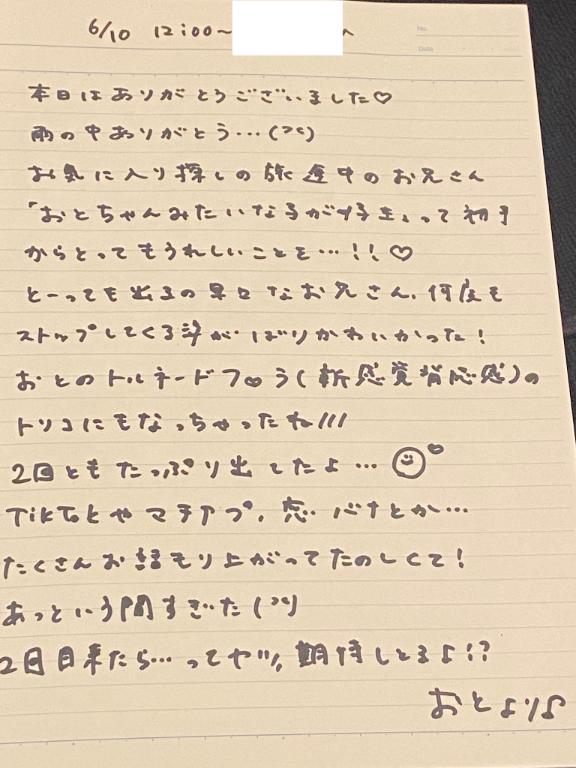 6/10 12:00〜 へ
No.
Date
本日はありがとうございました♡
雨の中ありがとう…(> <)
お気に入り探しの旅途中のお兄さん
「おとちゃんみたいな子が好き」って初手
からとってもうれしいことを…!!♡
とーっても出るの早くなお兄さん、何度も
ストップしてくる姿がばりかわいかった!
おとのトルネードフ♡う(新感覚 応感)の
トリコにもなっちゃったね///
2回ともたっぷり出したよ…
TikTokやマチアプ、恋バナとか…
たくさんお話もり上がってたのしくて!
あっという間すぎた(> <)
2回目来たら…ってヤツ、期待しとるよ!?
おとより♪